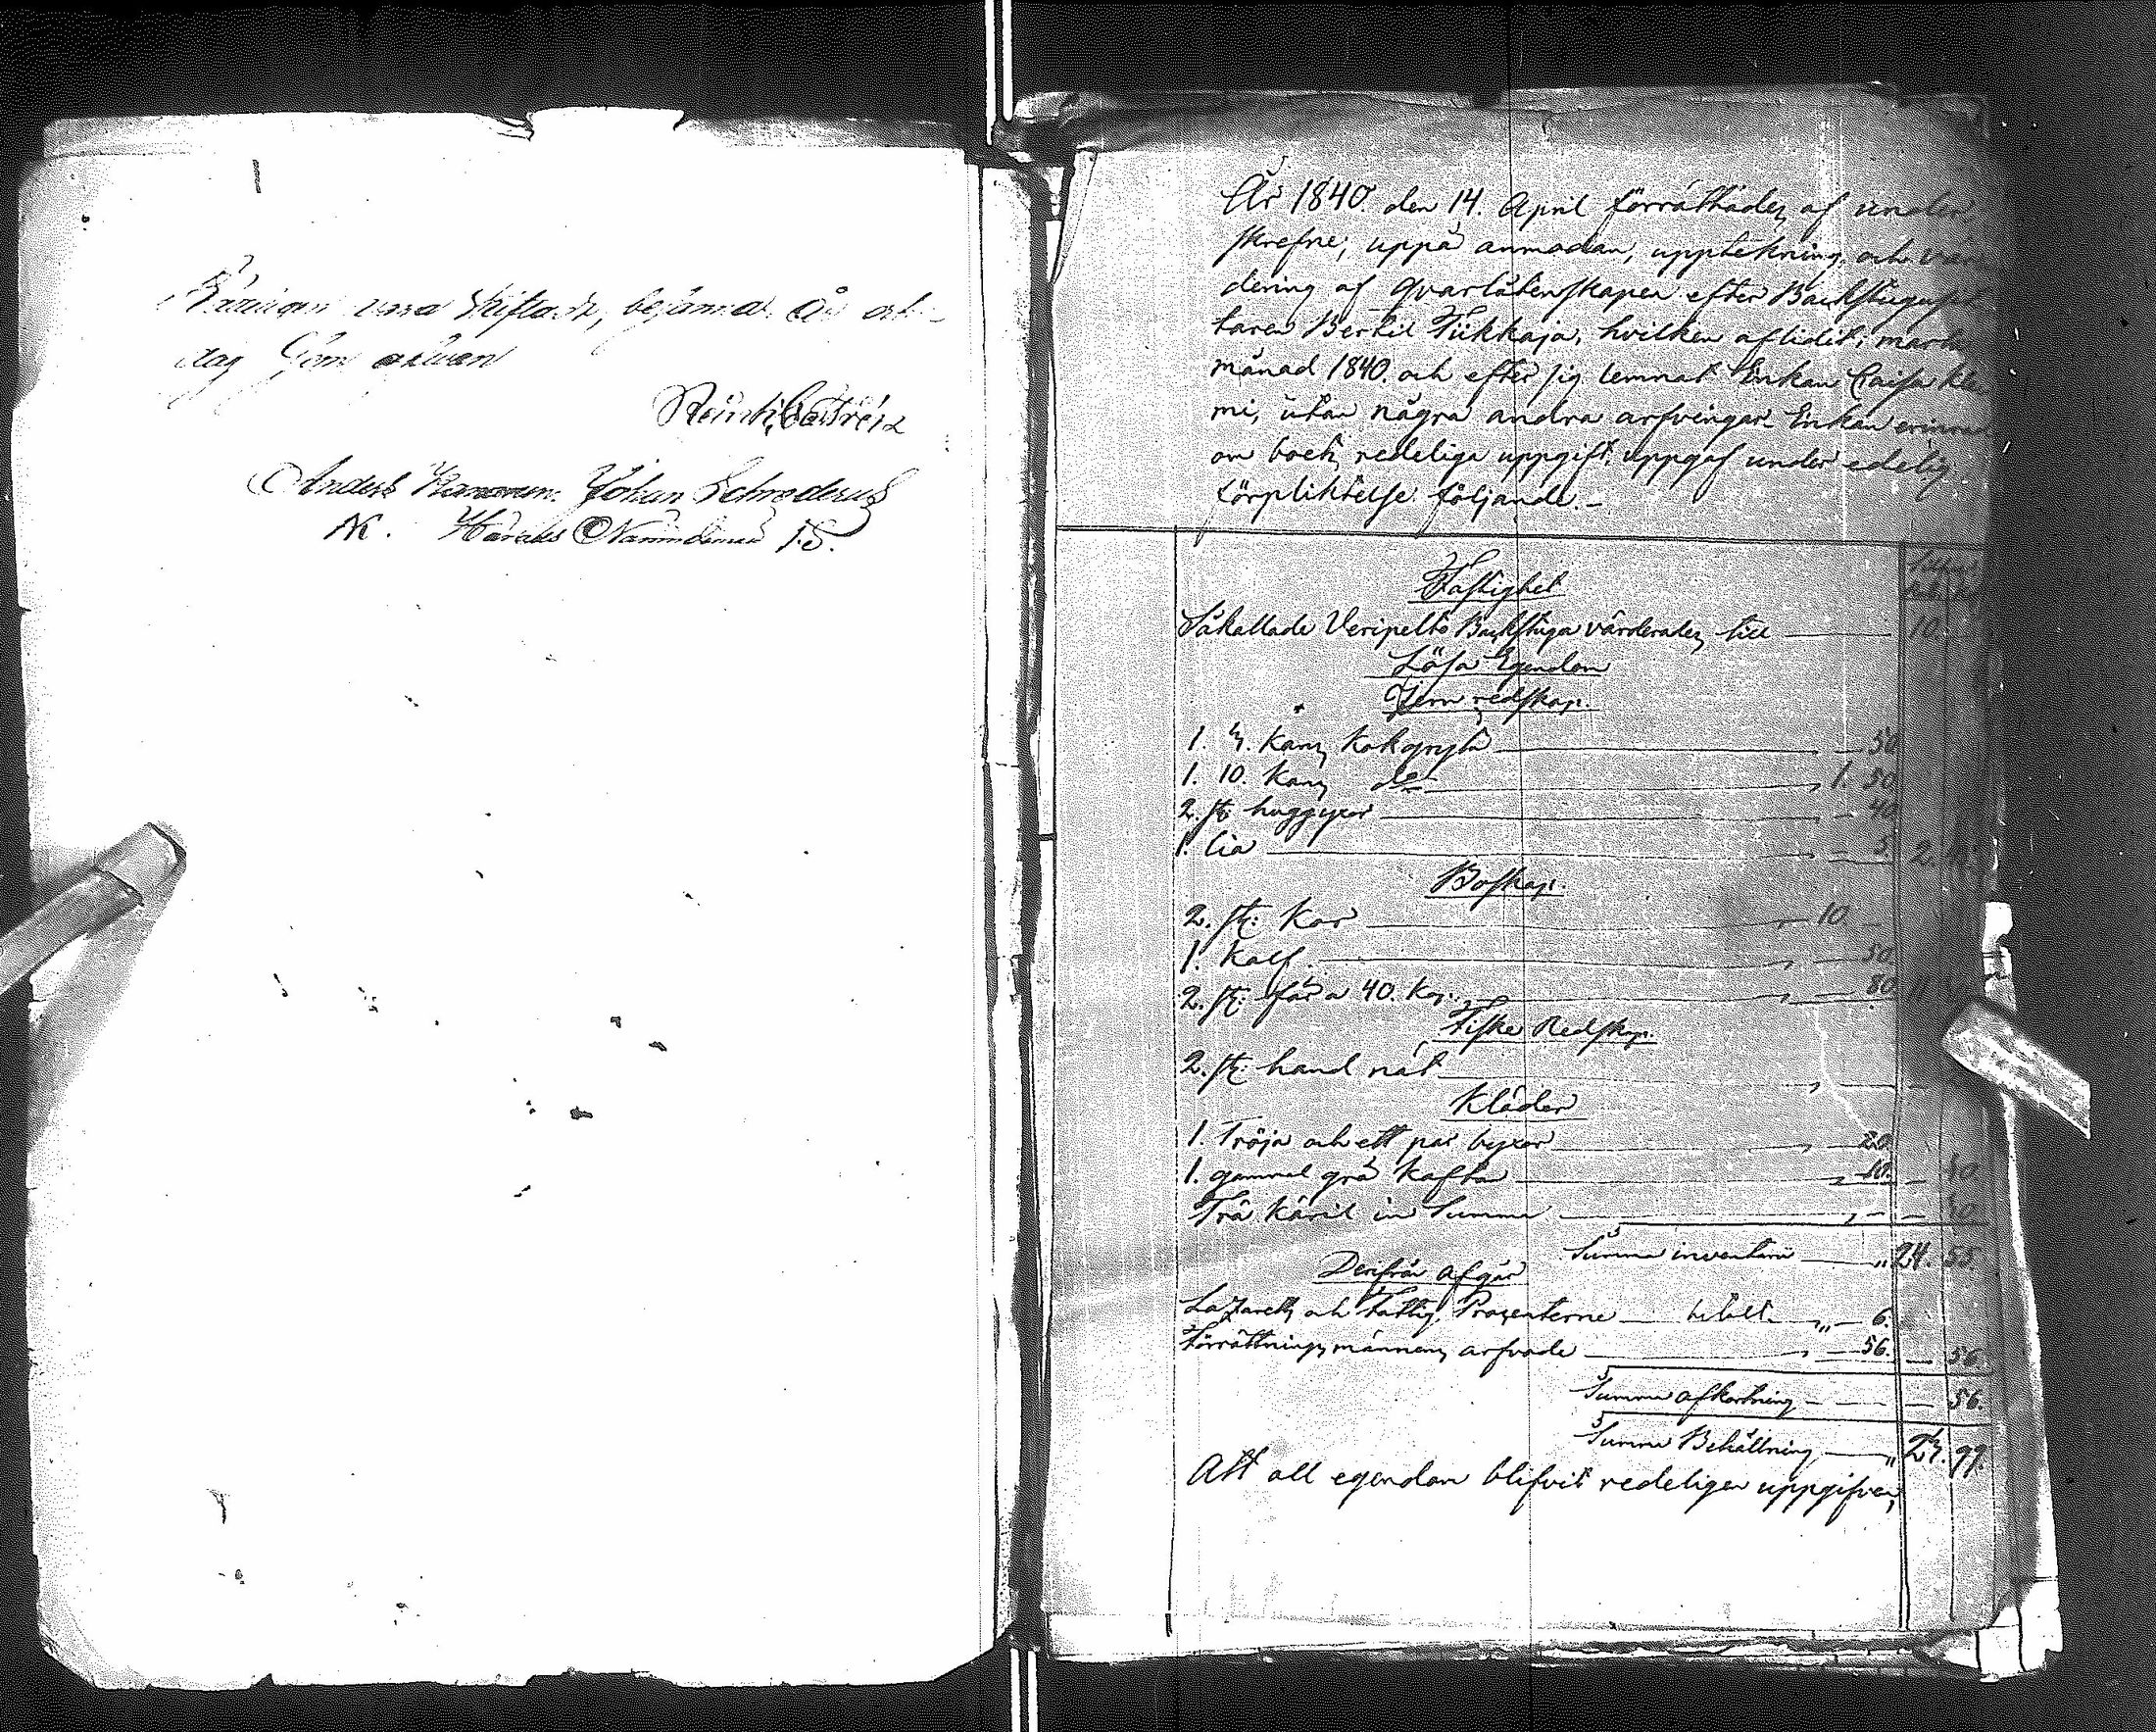 vara skiftadt, bejamna År och
dag som ofvan
Anders Johan Schroderus
AK. Härads Nämndeman J.S.
År 1840. den 14. April förrättades af under
skrefne, uppå anmodan, uppteckning och vär
dering af Qvarlåtenskapen efter Backstugusit
taren Bertil Tiikkaja, hvilken aflidit i martii
månad 1840. och efter sig lemnat Enkan Caisa
mi, utan några andra arfvingar Enkan erinrad
om boets redeliga uppgift, uppgaf under edelig
förpliktelse följande.
Fastighet
Såkallade Veripelto Backstuga värderades till 10.
Lösa Egendom
Jern redskap.
1. 4. Kans Kokgryta 50
1. 10. Kans do 1. 50
2. st. huggyxor 40
1. Lia 5. 2.
Boskap.
2. st: Kor 10
1. Kalf 50
2. st: får a 40. Kop. 80
Fiske Redskap.
2. st: hand nät
Kläder
1. Tröja och ett par byxor 20
1. gammal grå Kafta 10. 40
Trä Käril in Summa
Summa inventarii 24. 55.
Derifrån afgår
Lazaretts och Fattig. Procenterne 6.
Förrättningsmännens arfvode 56. 56.
Summa afkortning 56.
Summa Behållning 23. 99.
Att all egendom blifvit redeligen uppgifven,